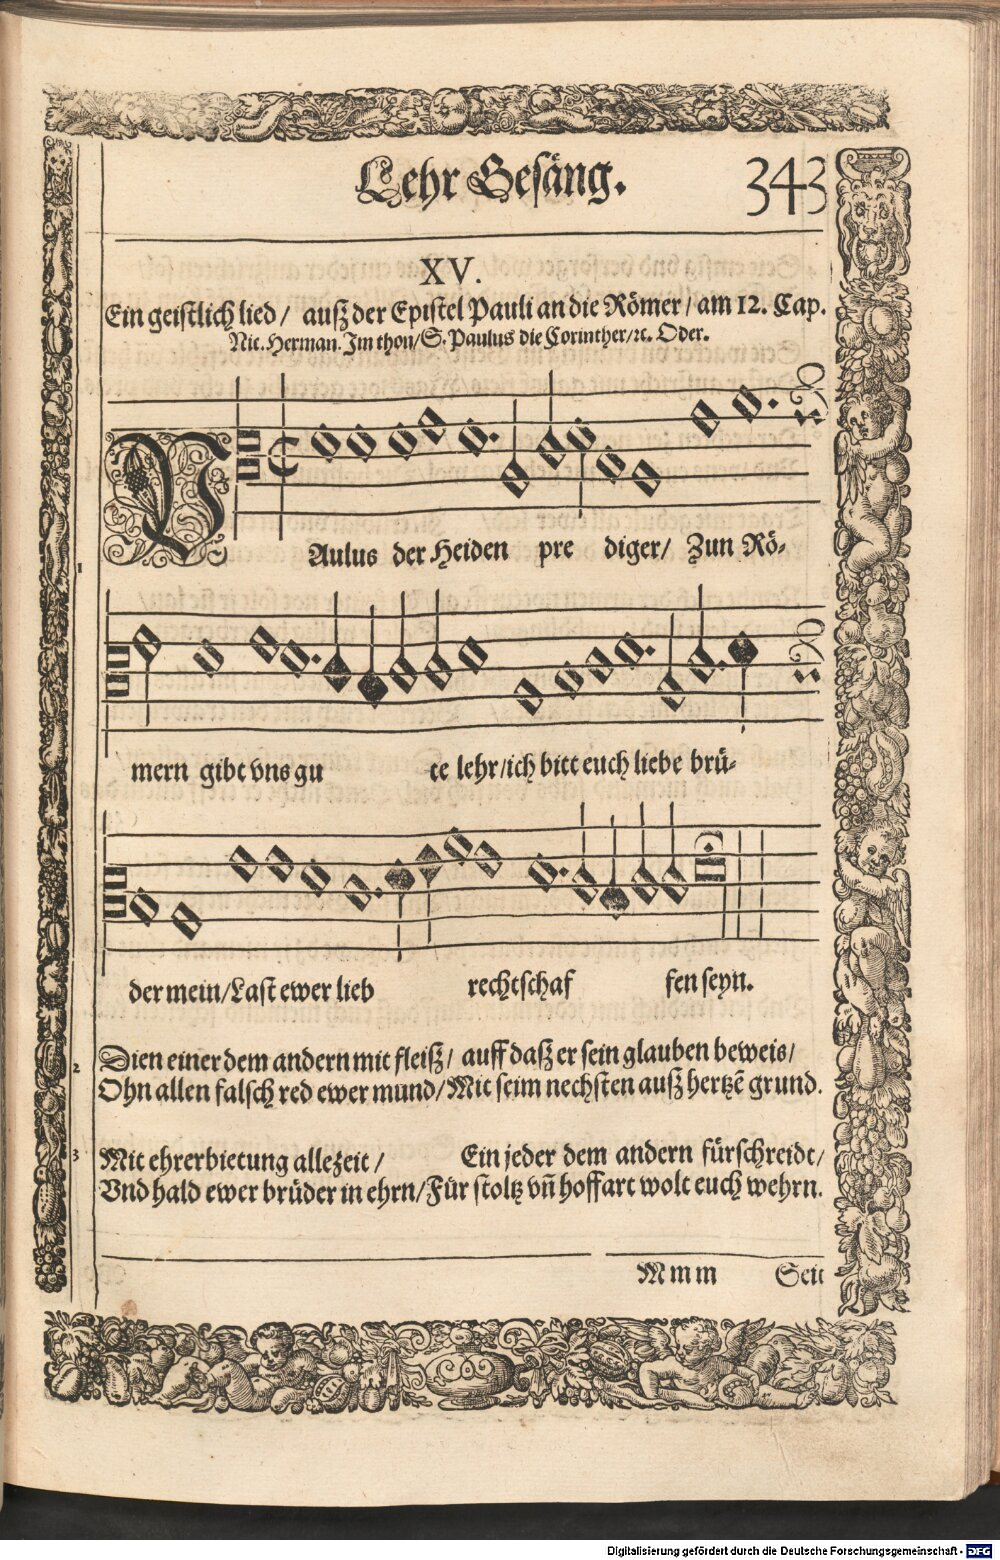 Lehr Gesäng. 343
XV.
Ein geistlich lied / auß der Epistel Pauli an die Römer / am 12. Cap.
Nic. Herman. Im thon / S. Paulus die Corinther / ꝛc. Oder.
PAulus der Heiden pre diger / Zun Rö-
1
mern gibt vns gu te lehr / ich bitt euch liebe brü-
der mein / Last ewer lieb rechtschaf fen seyn.
2 Dien einer dem andern mit fleiß / auff daß er sein glauben beweis /
Ohn allen falsch red ewer mund / Mit seim nechsten auß hertzē grund.
3 Mit ehrerbietung allezeit / Ein jeder dem andern fürschreidt /
Vnd hald ewer brüder in ehrn / Für stoltz vñ hoffart wolt euch wehrn.
Mmm Seit
Digitalisierung gefördert durch die Deutsche Forschungsgemeinschaft - DFG